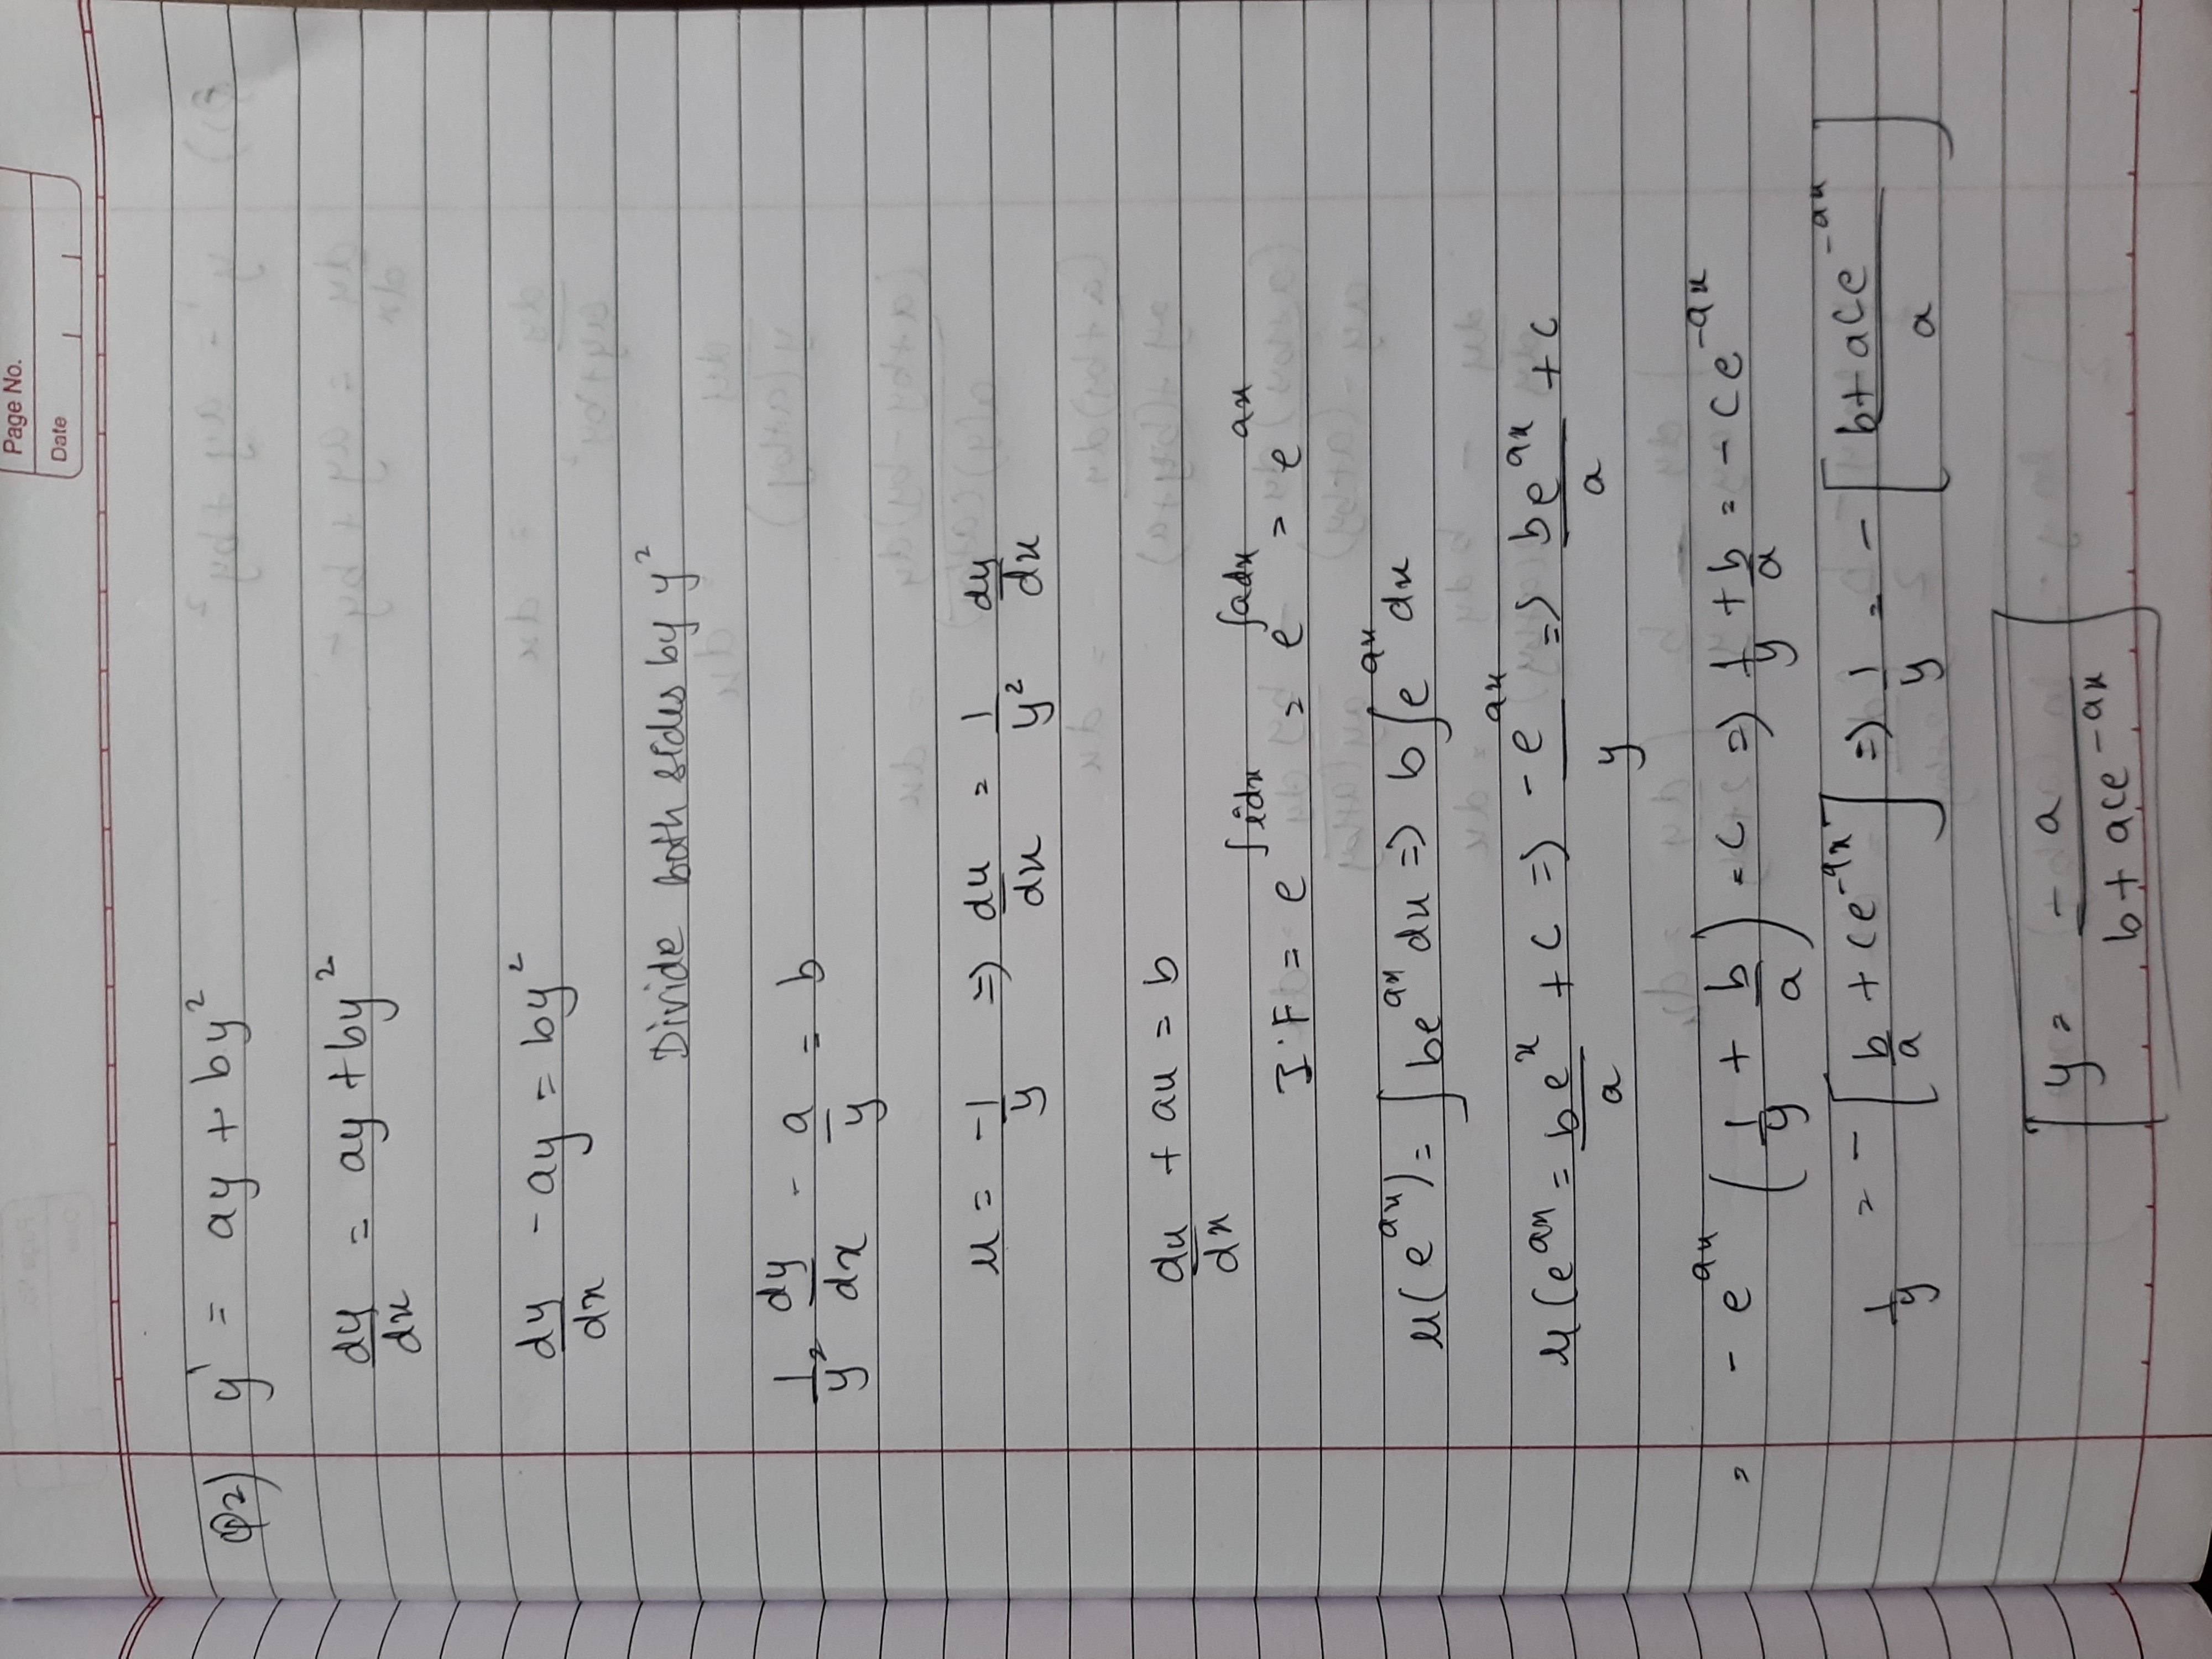 Page No.
Date
Q2) y' = ay + by²
dy/dx = ay + by²
dy/dx - ay = by²
Divide both sides by y²
1/y² dy/dx - a/y = b
u = -1/y => du/dx = 1/y² dy/dx
du/dx + au = b
I.F = e^∫idx = e^∫adx = e^ax
u(e^ax) = ∫be^ax dx => b∫e^ax dx
u(e^ax = be^x/a + c => -e^ax/y => be^ax/a + c
= -e^ax (1/y + b/a) = c => 1/y + b/a = -ce^-ax
1/y = -[b/a + ce^-ax] => 1/y = -[b + ace^-ax/a]
y = -a/b + ace^-ax